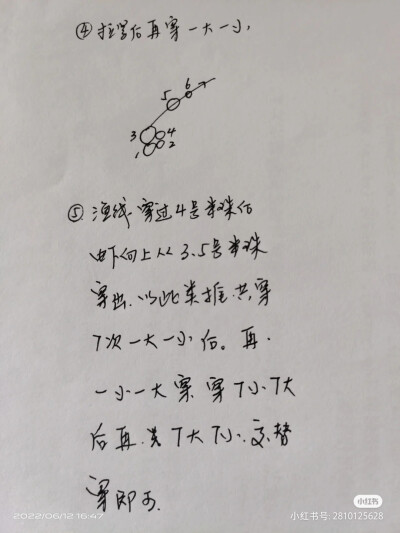 ④拉紧后再穿一大一小,
5
6
3
4
1
2
⑤渔线穿过4号米珠后
由下向上从3.5号米珠
穿出.以此类推.共穿
7次一大一小后。再.
一小一大穿.穿7小7大
后再.7大7小.交替
穿即可.
2022/06/12 16:47
小红书
小红书号: 2810125628